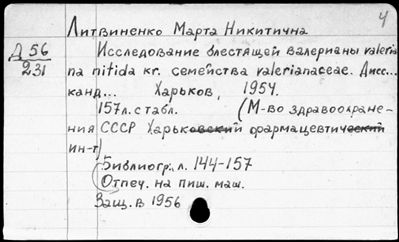 4
Литвиненко Марта Никитична
Д 56
231
Исследование блестящей валерианы valeria
na nitida kr. семейства valerianaceae. Дисс...
канд... Харьков, 1954.
157л. с табл. (М-во здравоохране-
ния СССР Харьковский фармацевтический
ин-т)
Библиогр: л. 144-157
Отпеч. на пиш. маш.
Защ. в 1956